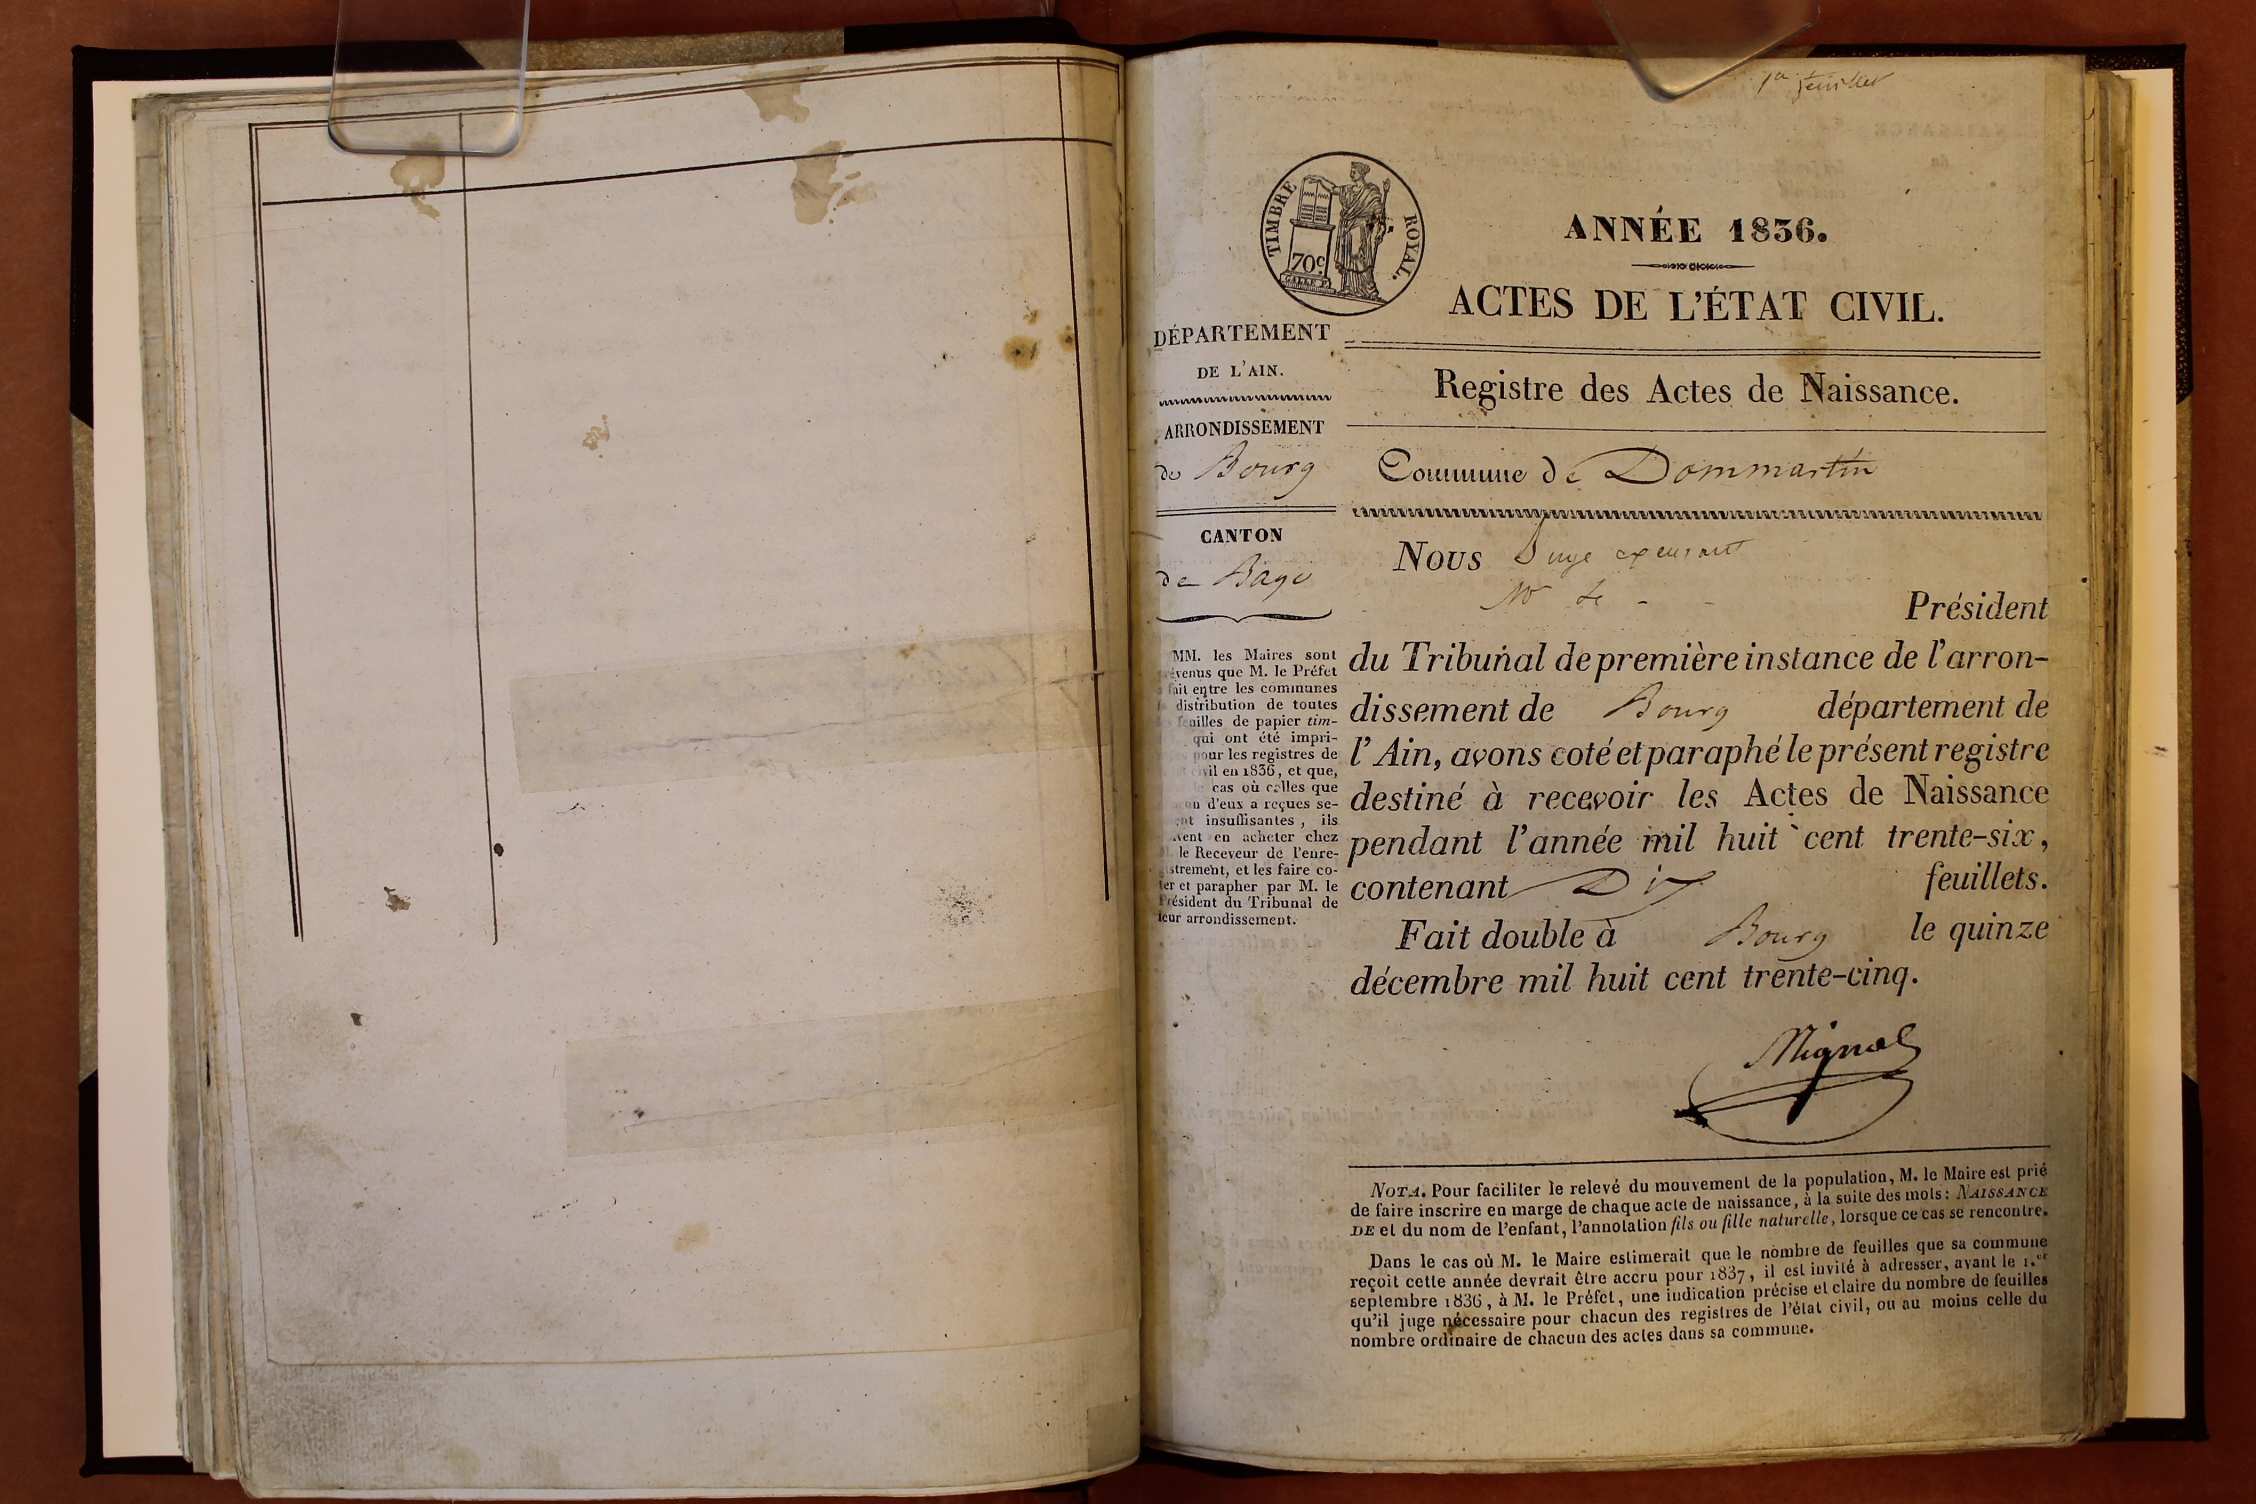 1er feuillet
TIMBRE ROYAL.
70c
ANNÉE 1836.
ACTES DE L'ÉTAT CIVIL.
DÉPARTEMENT
DE L'AIN.
ARRONDISSEMENT
de Bourg
CANTON
de Bagé
MM. les Maires sont
évenus que M. le Préfet
fait entre les communes
distribution de toutes
feuilles de papier tim-
qui ont été impri-
pour les registres de
civil en 1836, et que,
le cas où celles que
d'eux a reçues se-
insuffisantes, ils
en acheter chez
le Receveur de l'enre-
gistrement, et les faire co-
ter et parapher par M. le
Président du Tribunal de
leur arrondissement.
Registre des Actes de Naissance.
Commune de Dommartin
Nous Juge
Mr le - - Président
du Tribunal de première instance de l'arron-
dissement de Bourg département de
l'Ain, avons coté et paraphé le présent registre
destiné à recevoir les Actes de Naissance
pendant l'année mil huit cent trente-six,
contenant Dix feuillets.
Fait double à Bourg le quinze
décembre mil huit cent trente-cinq.
NOTA. Pour faciliter le relevé du mouvement de la population, M. le Maire est prié
de faire inscrire en marge de chaque acte de naissance, à la suite des mots: NAISSANCE
DE et du nom de l'enfant, l'annotation fils ou fille naturelle, lorsque ce cas se rencontre.
Dans le cas où M. le Maire estimerait que le nombre de feuilles que sa commune
reçoit cette année devrait être accru pour 1837, il est invité à adresser, avant le 1.er
septembre 1836, à M. le Préfet, une indication précise et claire du nombre de feuilles
qu'il juge nécessaire pour chacun des registres de l'état civil, ou au moins celle du
nombre ordinaire de chacun des actes dans sa commune.